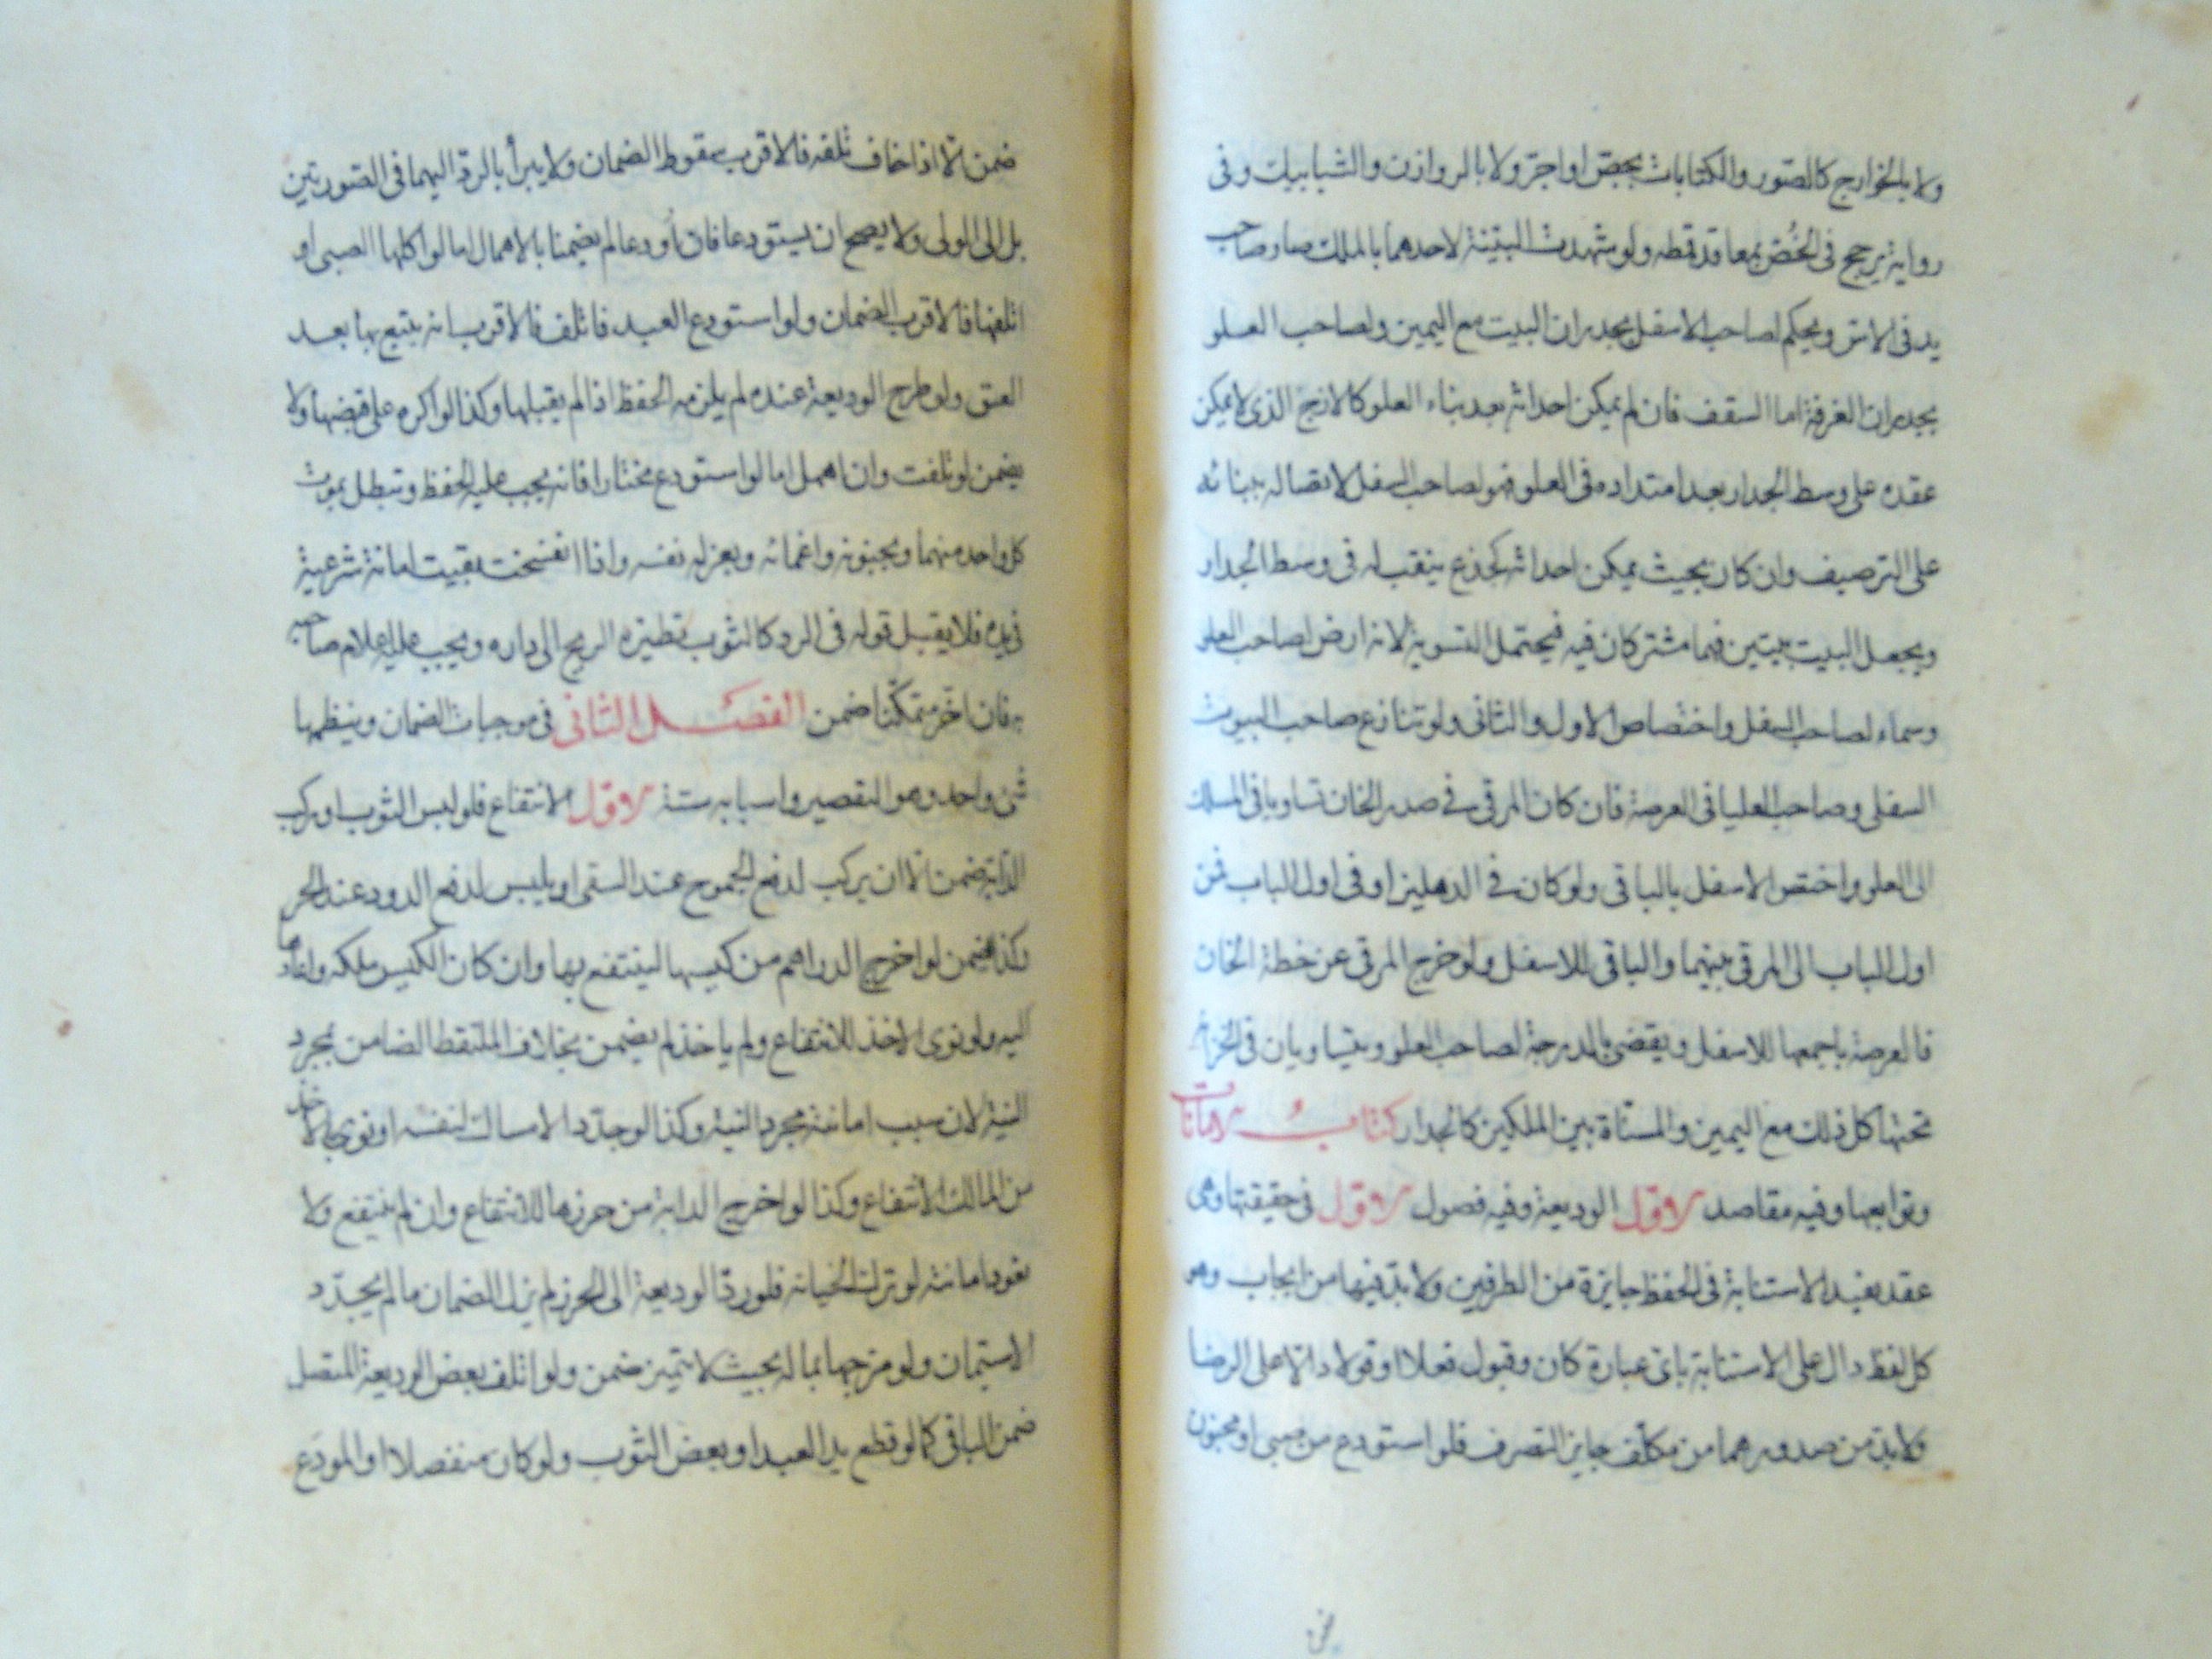 ولا بالخوارج كالصور والكتابات بجص او اجر ولا بالروازن والشبابيك وفى
رواية يرجح فى الخص بمعاقد قمطه ولو شهدت البينة لاحدهما بالملك صار صاحب
يد فى الاس ويحكم لصاحب الاسفل بجدران البيت مع اليمين ولصاحب العلو
بجدران الغرفة اما السقف فان لم يمكن احداثه بعد بناء العلو كالازج الذى لا يمكن
عقده على وسط الجدار بعد امتداده فى العلو فهو لصاحب السفل لاتصاله ببنائه
على الترصيف وان كان بحيث يمكن احداثه كجذع ينقب له فى وسط الجدار
ويجعل البيت بيتين فهما مشتركان فيه فيحتمل التسوية لانه ارض لصاحب العلو
وسماء لصاحب السفل واختصاص الاول والثانى ولو تنازع صاحب البيوت
السفلى وصاحب العليا فى العرصة فان كان المرقى فى صدر الخان تساويا فى المسلك
الى العلو واختص الاسفل بالباقى ولو كان فى الدهليز او فى اول الباب فمن
اول الباب الى المرقى بينهما والباقى للاسفل ولو خرج المرقى عن خطة الخان
فالعرصة باجمعها للاسفل ويقضى بالدرجة لصاحب العلو ويتساويان فى الخزانة
تحتها كل ذلك مع اليمين والمسناة بين الملكين كالجدار كتاب الامانات
وتوابعها وفيه مقاصد الاول الوديعة وفيه فصول الاول فى حقيقتها وهى
عقد يفيد الاستنابة فى الحفظ جايزة من الطرفين ولا بد فيها من ايجاب وهو
كل لفظ دال على الاستنابة باى عبارة كان وقبول فعلا او قولا دالا على الرضا
ولا بد من صدورهما من مكلف جايز التصرف فلو استودع من صبى او مجنون
ضمن
ضمن الا اذا خاف تلفه فالاقرب سقوط الضمان ولا يبرأ بالرد اليهما فى الصورتين
بل الى الولى ولا يصح ان يستودعا فان أودعا لم يضمنا بالاهمال اما لو اكلها الصبى او
اتلفها فالاقرب الضمان ولو استودع العبد فاتلف فالاقرب انه يتبع بها بعد
العتق ولو طرح الوديعة عنده لم يلزمه الحفظ اذا لم يقبلها وكذا لو اكره على قبضها ولا
يضمن لو تلفت وان اهمل اما لو استودع مختارا فانه يجب عليه الحفظ وتبطل بموت
كل واحد منهما وبجنونه واغمائه وبعزله نفسه واذا انفسخت بقيت امانة شرعية
فى يده فلا يقبل قوله فى الرد كالثوب تطيره الريح الى داره ويجب عليه اعلام صاحبه
به فان اخر متمكنا ضمن الفصل الثانى فى موجبات الضمان وينظمها
شئ واحد وهو التقصير واسبابه ستة الاول الانتفاع فلو لبس الثوب او ركب
الدابة ضمن الا ان يركب لدفع الجموح عند السقى او يلبس لدفع الدود عند الحر
وكذا يضمن لو اخرج الدراهم من كيسها لينتفع بها وان كان الكيس ملكه واعادها
اليه ولو نوى الاخذ للانتفاع ولم ياخذ لم يضمن بخلاف الملتقط الضامن بمجرد
النية لان سبب امانته مجرد النية وكذا لو جدد الامساك لنفسه او نوى بالاخذ
من المالك الانتفاع وكذا لو اخرج الدابة من حرزها للانتفاع وان لم ينتفع ولا
تعود امانته لو ترك الخيانه فلو رد الوديعة الى الحرز لم يزل الضمان ما لم يجدد
الاستيمان ولو مزجها بماله بحيث لا يتميز ضمن ولو اتلف بعض الوديعة المتصل
ضمن الباقى كما لو قطع يد العبد او بعض الثوب ولو كان منفصلا او المودع